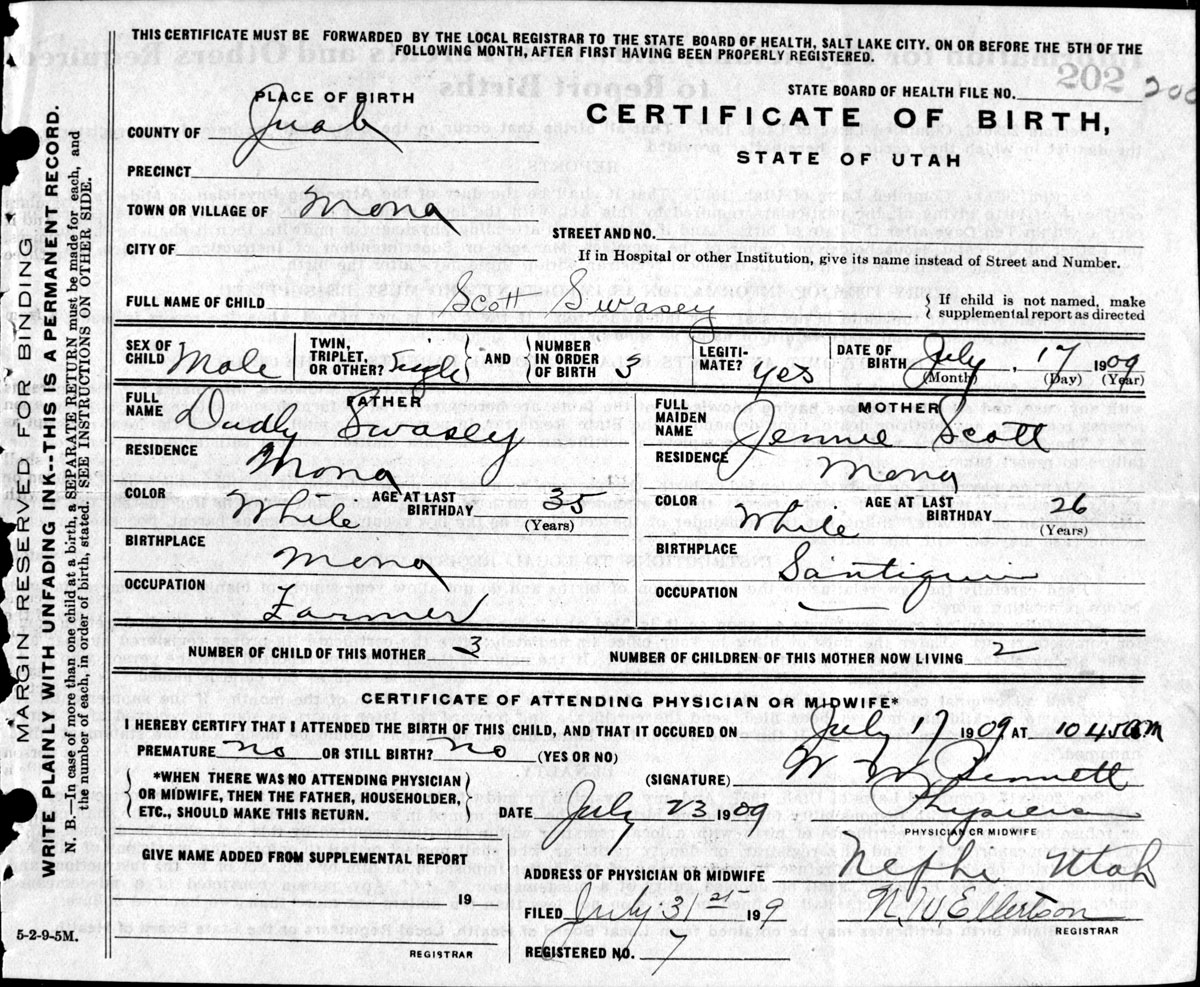 THIS CERTIFICATE MUST BE FORWARDED BY THE LOCAL REGISTRAR TO THE STATE BOARD OF HEALTH, SALT LAKE CITY. ON OR BEFORE THE 5TH OF THE
FOLLOWING MONTH, AFTER FIRST HAVING BEEN PROPERLY REGISTERED.
STATE BOARD OF HEALTH FILE NO. 202 200
PLACE OF BIRTH
CERTIFICATE OF BIRTH,
STATE OF UTAH
COUNTY OF Juab
PRECINCT
TOWN OR VILLAGE OF Mona
STREET AND NO.
CITY OF
If in Hospital or other Institution, give its name instead of Street and Number.
FULL NAME OF CHILD Scott Swasey
{ If child is not named, make
supplemental report as directed
SEX OF CHILD Male
TWIN, TRIPLET, OR OTHER? Single } AND { NUMBER IN ORDER OF BIRTH 3
LEGITI-MATE? yes
DATE OF BIRTH July, 17 1909
(Month) (Day) (Year)
FATHER
FULL NAME Dudly Swasey
RESIDENCE Mona
COLOR White AGE AT LAST BIRTHDAY 35
(Years)
BIRTHPLACE Mona
OCCUPATION Farmer
MOTHER
FULL MAIDEN NAME Jennie Scott
RESIDENCE Mona
COLOR White AGE AT LAST BIRTHDAY 26
(Years)
BIRTHPLACE Santiquin
OCCUPATION
NUMBER OF CHILD OF THIS MOTHER 3
NUMBER OF CHILDREN OF THIS MOTHER NOW LIVING 2
CERTIFICATE OF ATTENDING PHYSICIAN OR MIDWIFE*
I HEREBY CERTIFY THAT I ATTENDED THE BIRTH OF THIS CHILD, AND THAT IT OCCURED ON July 17 1909 AT 1045am
PREMATURE no OR STILL BIRTH? no (YES OR NO)
(SIGNATURE) Bennett
{ *WHEN THERE WAS NO ATTENDING PHYSICIAN
OR MIDWIFE, THEN THE FATHER, HOUSEHOLDER,
ETC., SHOULD MAKE THIS RETURN. }
DATE July 23 1909
PHYSICIAN OR MIDWIFE
GIVEN NAME ADDED FROM SUPPLEMENTAL REPORT
19
REGISTRAR
ADDRESS OF PHYSICIAN OR MIDWIFE Nephi Utah
FILED July 31st 199 Ellertson
REGISTRAR
REGISTERED NO. 7
5-2-9-5M.
MARGIN RESERVED FOR BINDING
WRITE PLAINLY WITH UNFADING INK--THIS IS A PERMANENT RECORD.
N. B.--In case of more than one child at a birth, a SEPARATE RETURN must be made for each, and
the number of each, in order of birth, stated. SEE INSTRUCTIONS ON OTHER SIDE.